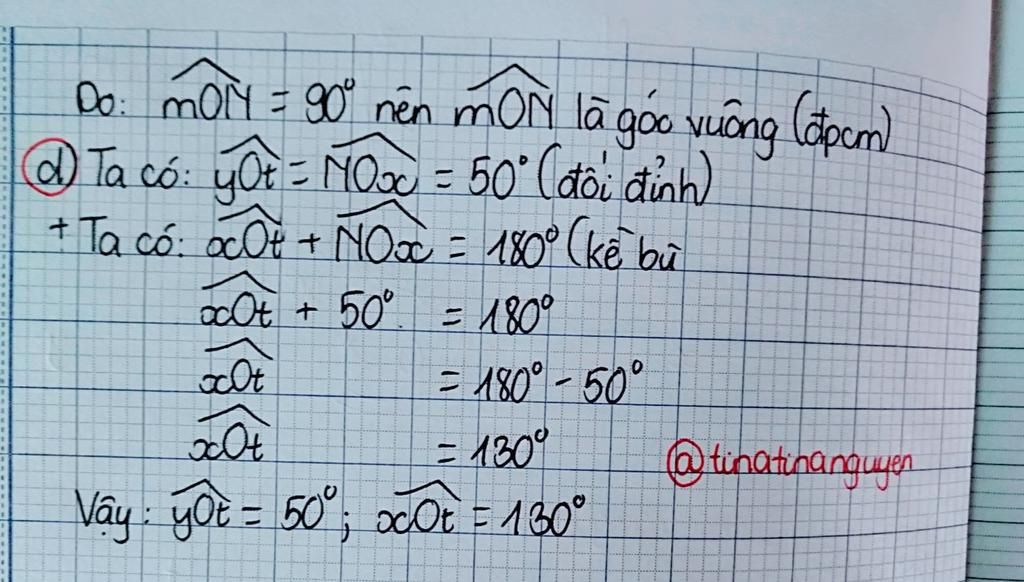 Do: mON = 90° nên mON là góc vuông (đpcm)
d) Ta có: yOt = NOx = 50° (đối đỉnh)
+ Ta có: xOt + NOx = 180° (kề bù
xOt + 50° = 180°
xOt = 180° - 50°
xOt = 130°
@tinatinanguyen
Vậy: yOt = 50°; xOt = 130°